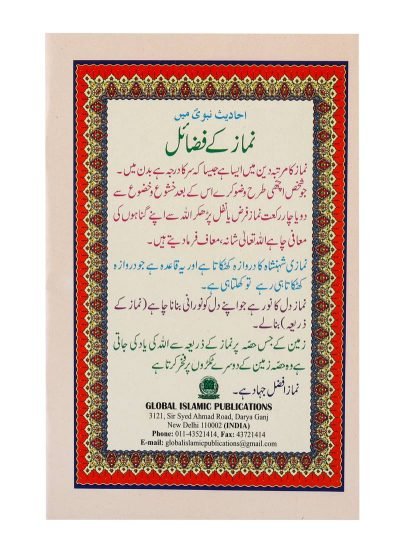 احادیث نبویؐ میں
نماز کے فضائل
نماز کا مرتبہ دین میں ایسا ہے جیسا کہ سر کا درجہ ہے بدن میں۔
جو شخص اچھی طرح وضو کرے اس کے بعد خشوع وخضوع سے
دو یا چار رکعت نماز فرض یا نفل پڑھکر اللہ سے اپنے گناہوں کی
معافی چاہے اللہ تعالیٰ شانہ، معاف فرمادیتے ہیں۔
نمازی شہنشاہ کا دروازہ کھٹکاتا ہے اور یہ قاعدہ ہے جو دروازہ
کھٹکاتا ہی رہے تو کھلتا ہی ہے۔
نماز دل کا نور ہے جو اپنے دل کو نورانی بنانا چاہے (نماز کے
ذریعہ) بنالے۔
زمین کے جس حصّہ پر نماز کے ذریعہ سے اللہ کی یاد کی جاتی
ہے وہ حصّہ زمین کے دوسرے ٹکڑوں پر فخر کرتا ہے
نماز افضل جہاد ہے۔
GLOBAL ISLAMIC PUBLICATIONS
3121, Sir Syed Ahmad Road, Darya Ganj
New Delhi 110002 (INDIA)
Phone: 011-43521414, Fax: 43721414
E-mail: globalislamicpublications@gmail.com